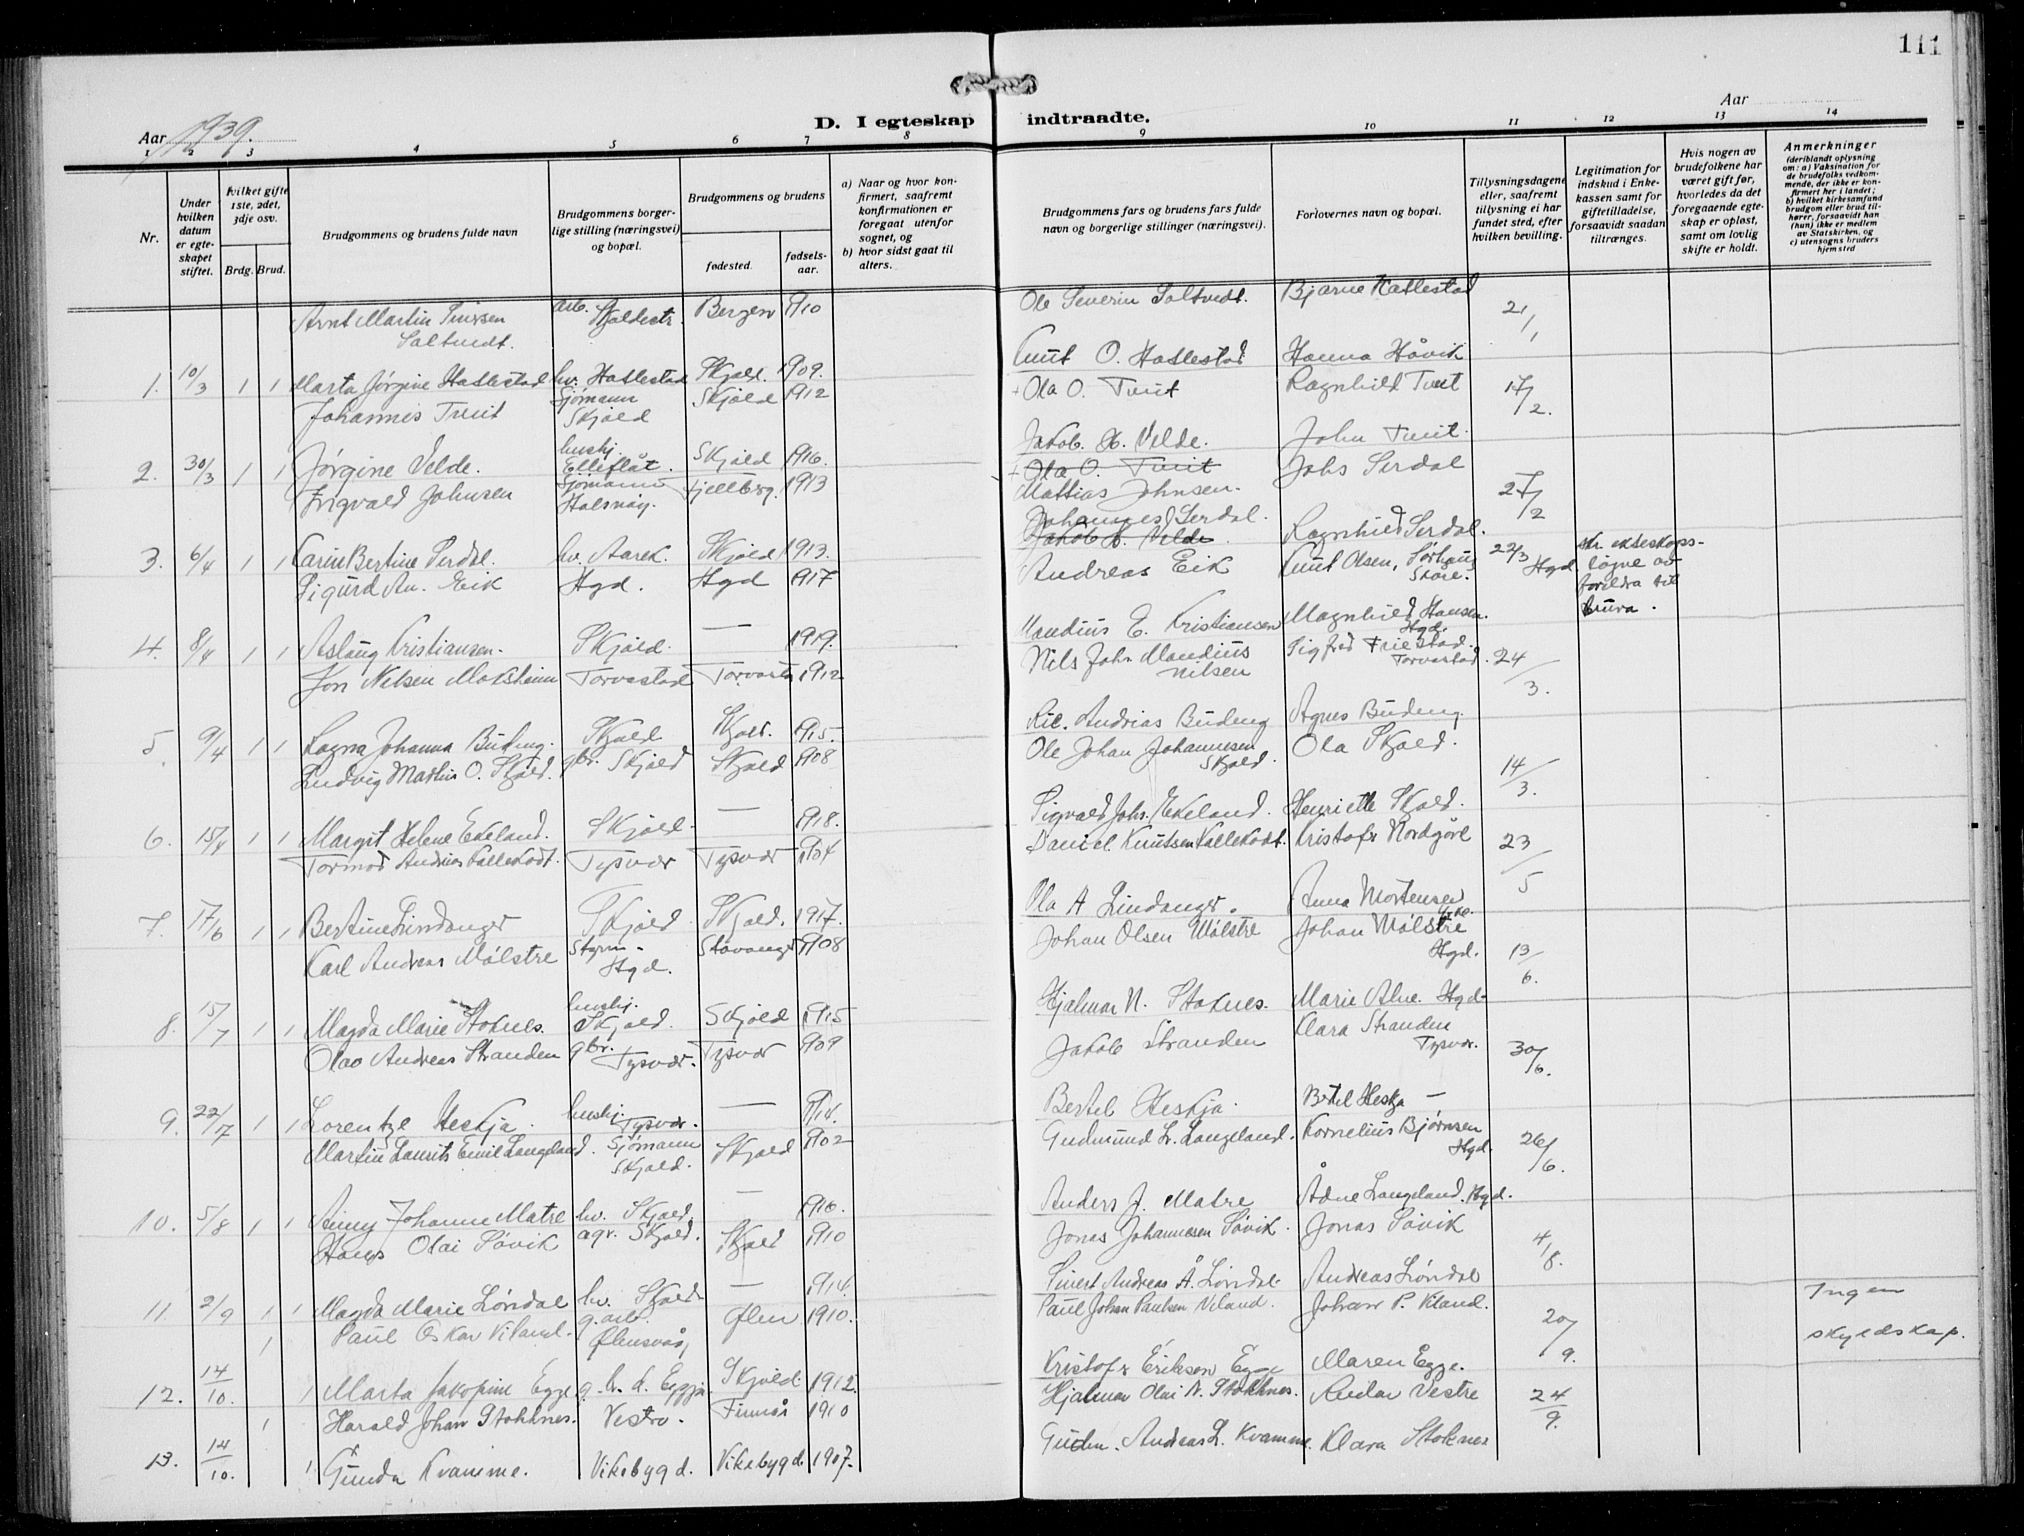 111
Aar 1939.
D. I egteskap indtraadte.
Aar
1 2 3 4 5 6 7 8 9 10 11 12 13 14
Nr.
Under hvilken datum er egteskapet stiftet.
hvilket gifte 1ste, 2det, 3dje osv.
Brdg. Brud.
Brudgommens og brudens fulde navn
Brudgommens borgerlige stilling (næringsvei) og bopæl.
Brudgommens og brudens
fødested.
fødselsaar.
a) Naar og hvor konfirmert, saafremt konfirmationen er foregaat utenfor sognet, og
b) hvor sidst gaat til alters.
Brudgommens fars og brudens fars fulde navn og borgerlige stillinger (næringsvei).
Forlovernes navn og bopæl.
Tillysningsdagene eller, saafremt tillysning ei har fundet sted, efter hvilken bevilling.
Legitimation for indskud i Enkekassen samt for giftetilladelse, forsaavidt saadan tiltrænges.
Hvis nogen av brudefolkene har været gift før, hvorledes da det foregaaende egteskap er opløst, samt om lovlig skifte er holdt.
Anmerkninger
(deriblandt oplysning om: a) Vaksination for de brudefolks vedkommende, der ikke er konfirmert her i landet; b) hvilket kirkesamfund brudgom eller brud tilhører, forsaavidt han (hun) ikke er medlem av Statskirken, og c) utensogns bruders hjemsted
Arnt Martin Sivrsen arb. Skjoldestr. Bergen 1910 Ole Severin Saltvedt. Bjarne Hatlestad 21/1
Saltvedt.
Knut O. Hatlestad Hanna Håvik
1. 10/3 1 1 Marta Jørgine Hatlestad hv. Hatlestad Skjold. 1909.
Johannes Tveit Sjømann Skjold Skjold 1912 + Ola O. Tveit Ragnhild Tveit 17/2.
Jakob B. Velde. John Tveit
2. 30/3 1 1 Jørgine Velde. hushj. Ølleflåt. Skjold 1916.
+ Ola O. Tveit Johs Serdal
Ingvald Johnsen Sjømann Halsnøy. Fjellberg. 1913 Mattias Johnsen. 27/2
Johannes Serdal. Ragnhild Serdal.
Jakob B. Velde
3. 6/4 1 1 Karin Bertine Serdal. hv. Aarek. Skjold 1913.
Sigurd An. Eik Hgd. Hgd 1917 Andreas Eik Knut Olsen, Sørhaug Skåre. 22/3 Hgd skr. ekteskapsløyve av foreldra til brura.
Mandius E. Kristiansen Magnhild Hansen. Hgd.
4. 8/4 1 1 Aslaug Kristiansen. Skjold. — 1919.
Jon Nilsen Moksheim Torvastad Torvastad 1912 Nils John Mandius Nilsen Sigfred Friestad. Torvastad. 24/3.
Andrias Büdeng Agnes Büdeng
5. 9/4 1 1 Ragna Johanna Büdeng. Skjold Skjold. 1915.
Ludvig Martin O. Skjold. gbr. Skjold Skjold 1908 Ole Johan Johannesen Skjold. Ola Skjold. 14/3.
Sigvald Johs. Ekeland. Henriette Skjold.
6. 15/4 1 1 Margit Helene Ekeland. Skjold. — 1918.
Tormod Andrias Kallekodt. Tysvær Tysvær 1904 Daniel Knutsen Kallekodt. Kristofr Nordgård 23/5
Ola A Lindanger. Anna Mortensen
7. 17/6 1 1 Bertine Lindanger Skjold Skjold. 1917.
Karl Andreas Mølstre Styrm. Hgd. Stavanger 1908 Johan Olsen Mølstre Johan Mølstre Hgd. 13/6
Hjalmar N. Stoknes. Marie Alne. Hgd.
8. 15/7 1 1 Magda Marie Stoknes. hushj. Skjold. Skjold 1915
Olav Andreas Stranden gbr. Tysvær. Tysvær 1909 Jakob Stranden Klara Stranden Tysvær. 30/6.
Bertel Heskja. Bertel Heskja —
9. 22/7 1 1 Lorentze Heskja. hushj. Tysvær. — 1914.
Martin Laurits Emil Langeland. Sjømann Skjold. Skjold 1902 Gudmund L. Langeland. Kornelius Bjørnsen Hgd. 26/6.
Anders J. Matre Ådne Langeland. Hgd.
10. 5/8 1 1 Anny Johanne Matre hv. Skjold. — 1916.
Hans Olai Søvik agr. Skjold. Skjold 1910 Jonas Johannesen Søvik. Jonas Søvik 4/8.
Sivert Andreas Å. Løndal. Andreas Løndal
11. 2/9 1 1 Magda Marie Løndal hv. Skjold — 1914.
Paul Oskar Viland. g.arb. Ølensvåg, Ølen 1910. Paul Johan Paulsen Viland. Johan P. Kland. 20/9. Ingen skyldskap.
Kristofr Erikson Egge Maren Egge.
12. 14/10. 1 1 Marta Jakopine Egge g. h. d. Eggja Skjold 1912.
Harald Johan Stokknes. Vestre. Finnås 1910 Hjalmar Olai N. Stokknes. Reidar Vestre 24/9.
Gudm. Andreas L. Kvamme. Klara Stoknes
13. 14/10. 1 1 Gunda Kvamme. Vikebygd. Vikebygd 1907.